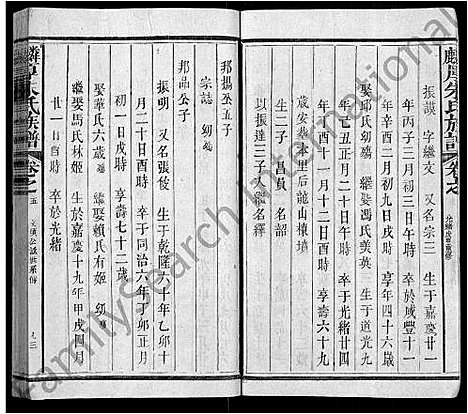 麟厚朱氏族譜 卷之
光緒戊申重修
振謨 字繼文 又名宗三 生于嘉慶廿一
年丙子三月初三日辰時 卒於咸豐十一
年辛酉二月初九日戌時 享年四十六歲
娶邱氏幼 繼娶馮氏英 生于道光九
年己丑正月二十日午時 卒於光緒廿四
年戊戌 月二十日酉時 享壽六十八
歲安葬本里后龍山穰墳
生二子 名昌 名韶
以振達三子入繼名釋
邦揚丞五子
宗誌 幼
邦品公子
振明 又名張儉 生于乾隆六十年乙卯十
月二十日酉時 卒于同治六年丁卯正月
初一日戌時 享壽七十二歲
娶華氏六歲 繼娶賴氏有姬 幼
繼娶馬氏林姬 生于嘉慶十九年甲戌四月
廿一日酉時 卒於光緒
麟厚朱氏族譜 卷之五
九三
FamilySearch International